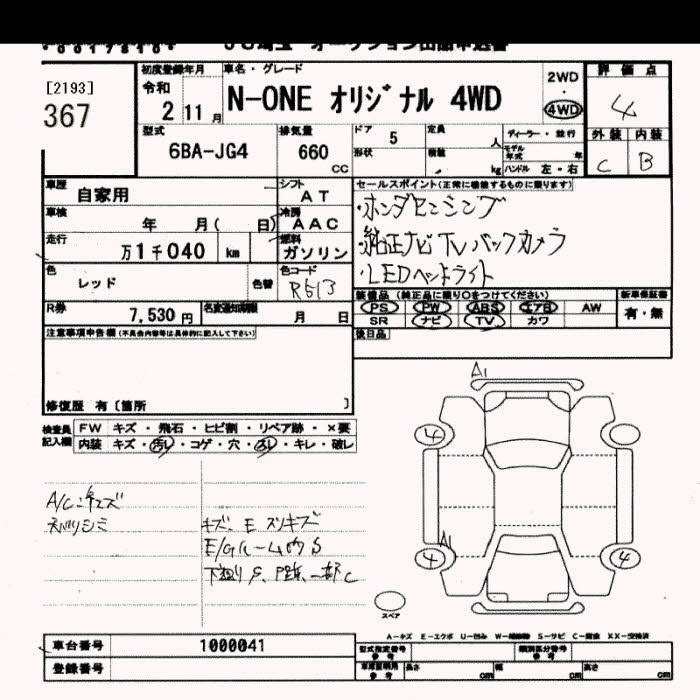 JU埼玉 オークション出品申込書
[2193]
367
初度登録年月
令和
2 11月
車名・グレード
N-ONE オリジナル 4WD
2WD
・
4WD
評価点
4
外装 内装
C B
型式
6BA-JG4
排気量
660
CC
ドア 5
形状
定員
人
積載
kg
ディーラー・並行
モデル年式 年
ハンドル 左・右
車歴
自家用
シフト
AT
車検
年 月( 日)
冷房
AAC
走行
万1千040 km
燃料
ガソリン
色
レッド
色替
色コード
R513
R券
7,530円
名変通知期限
月 日
セールスポイント(正常に機能するものに限ります)
・ホンダセンシング
・純正ナビTVバックカメラ
・LEDヘッドライト
装備品 (純正品に限り○をつけてください)
新車保証書
PS PW ABS エアB AW
SR ナビ TV カワ
有・無
後日品
注意事項申告欄(不具合内容等は具体的に記入して下さい)
修復歴 有〔箇所 〕
検査員
記入欄
FW キズ・飛石・ヒビ割・リペア跡・×要
内装 キズ・汚レ・コゲ・穴・スレ・キレ・破レ
A/C
キズ、E スリキズ
E/Gルーム内S
下廻りS、 一部C
A1
4
A1
4
4
スペア
A-キズ E-エクボ U-凹み W-補修跡 S-サビ C-腐食 XX-交換済
車台番号
1000041
登録番号
型式指定番号
参考
類別区分番号
参考
車庫証明用
参考
長さ cm
幅 cm
高さ cm